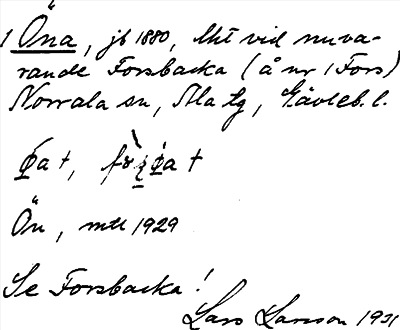 1 Öna, jb 1880, Mt vid nuva-
rande Forsbacka (å nr 1 Fors)
Norrala sn, Ala tg, Gävleb. l.
Ön, mtl 1929
Se Forsbacka!
Lars Larsson 1931